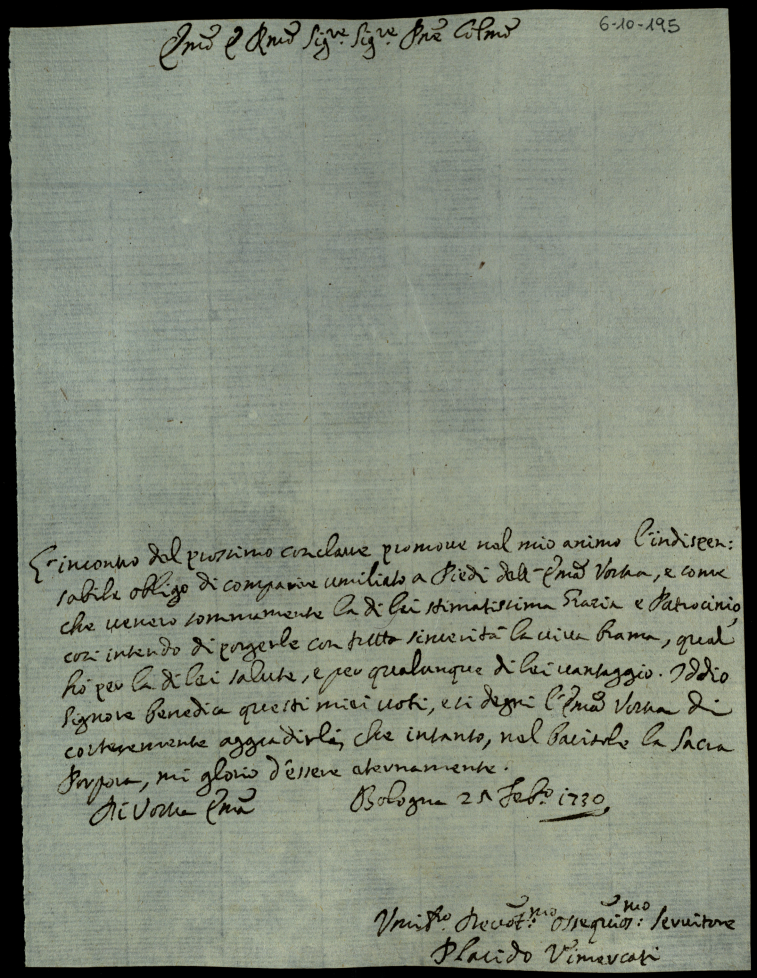 6-10-195
Emo e Rmo Sigre. Sigre. Pne Colmo
L'incontro del prossimo conclave promove nel mio animo l'indispen:
sabile obligo di comparire umiliato a Piedi dell'Emza Vostra, e come
che venero sommamente la di lei stimatissima Grazia e Patrocinio,
cosi intendo di porgerle con tutta sincerità la viva brama, qual
hò per la di lei salute, e per qualunque di lei vantaggio. Iddio
Signore benedica questi miei voti, e si degni l'Emza Vostra di
cortesemente aggradirli, che intanto, nel baciarle la Sacra
Porpora, mi glorio d'essere eternamente.
Di Vostra Emza Bologna 25 Febo. 1730
Umilso. Devotmo. Ossequiosmo: Servitore
Placido Vimercati